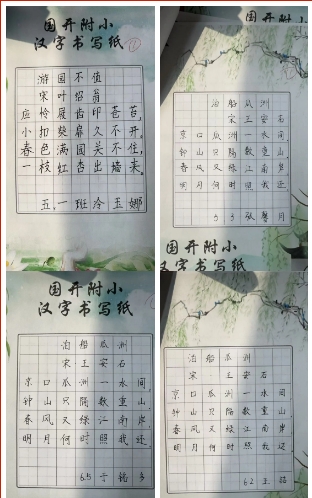 国开附小
汉字书写纸
游园不值
宋 叶绍翁
应怜屐齿印苍苔,
小扣柴扉久不开。
春色满园关不住,
一枝红杏出墙来。
五,一班冷玉娜
国开附小
泊船瓜洲
宋 王安石
京口瓜洲一水间
钟山只隔数重山。
春风又绿江南岸
明月何时照我还
月
国开附小
汉字书写纸
国开附小
汉字书写纸
泊船瓜洲
宋 王安石
京口瓜洲一水间,
钟山只隔数重山。
春风又绿江南岸,
明月何时照我还。
6.5
泊船瓜洲
宋 王安石
京口瓜洲一水间,
钟山只隔数重山。
春风又绿江南岸
明月何时照我还
6.2 王